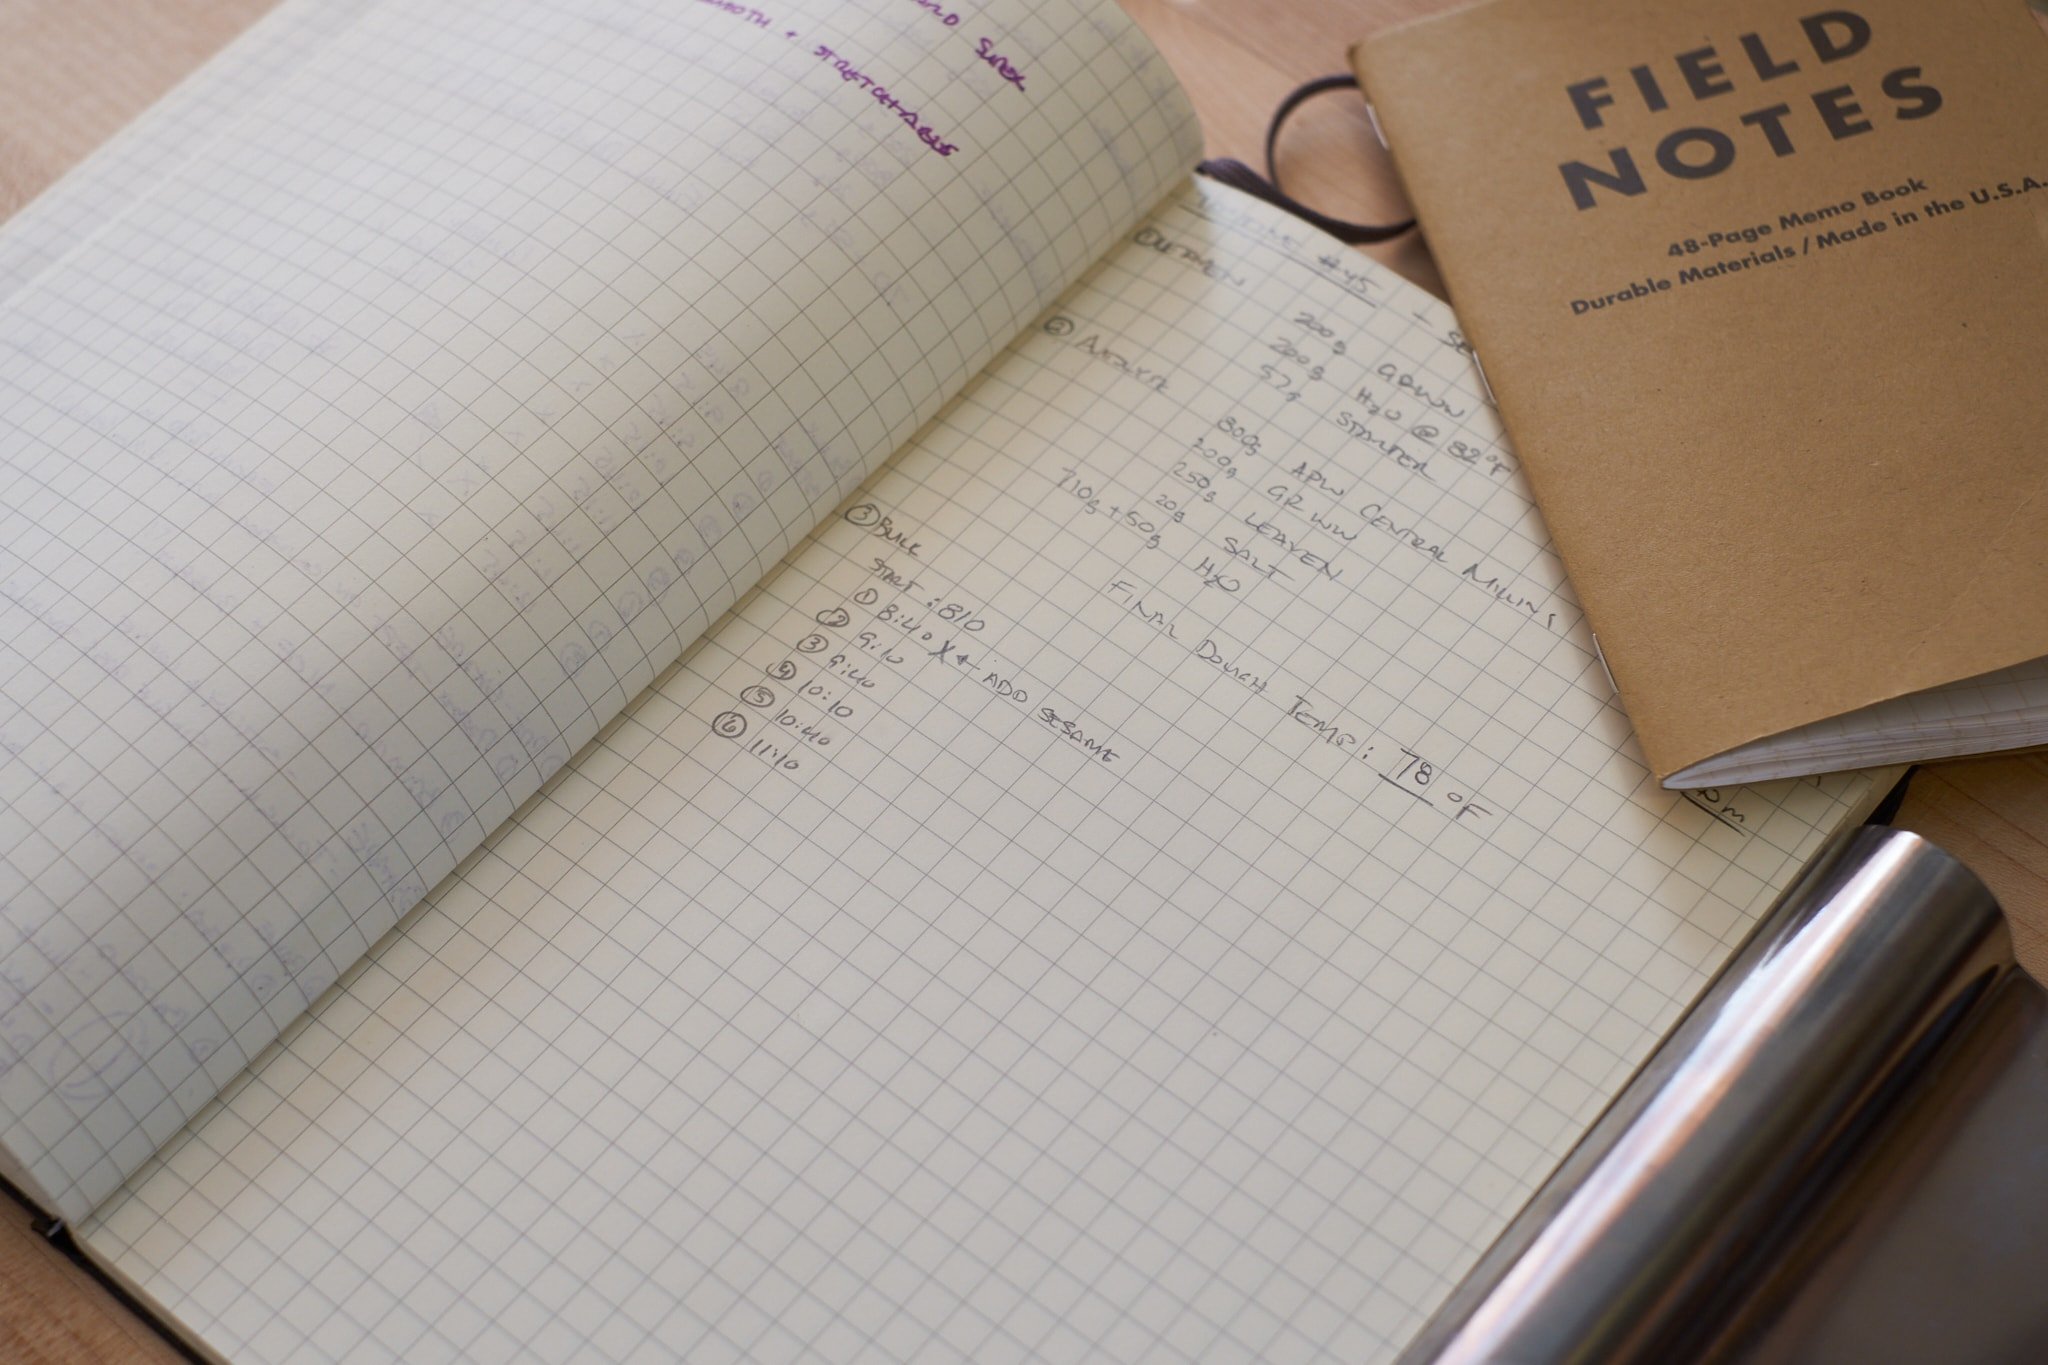 SMOOTH + STRETCHABLE
#45
① OVERNIGHT
200g GR WW
200g H2O @ 82°F
57g STARTER
② AUTOLYSE
800g APW CENTRAL MILLING
200g GR WW
250g LEAVEN
20g SALT
710g + 50g H2O
FINAL DOUGH TEMP: 78 °F
pm
③ BULK
START: 810
① 8:40 X ← ADD SESAME
② 9:10
③ 9:40
④ 10:10
⑤ 10:40
⑥ 11:10
FIELD
NOTES
48-Page Memo Book
Durable Materials / Made in the U.S.A.